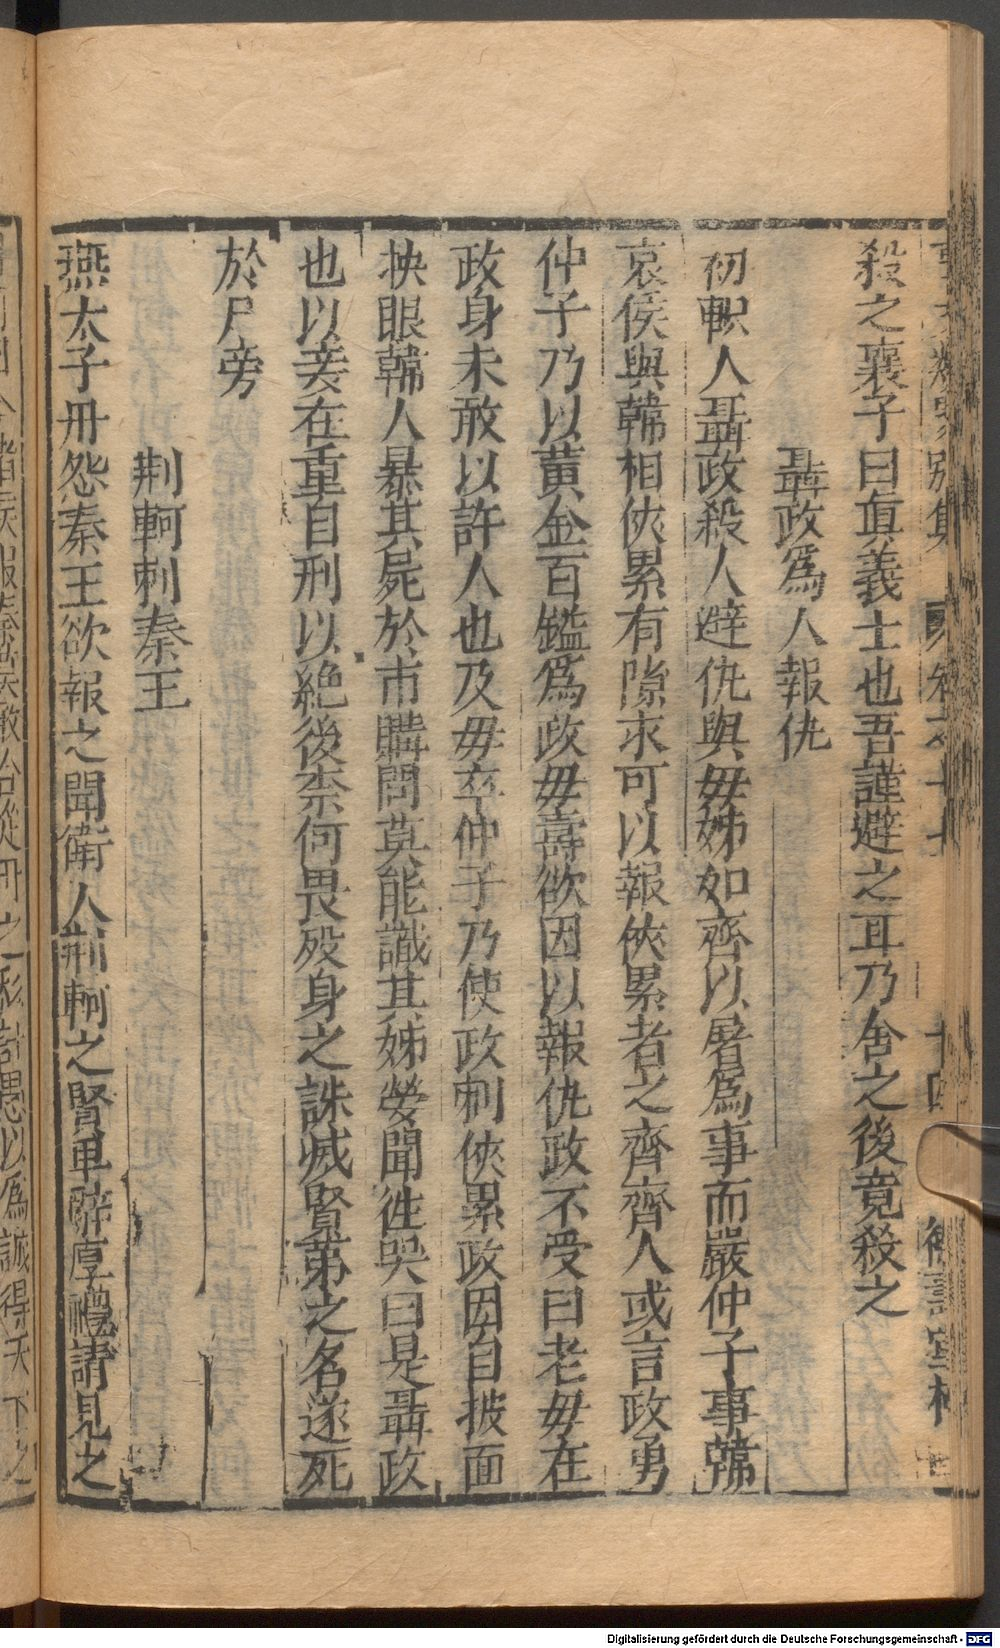 殺之襄子曰真義士也吾謹避之耳乃舍之後竟殺之
聶政爲人報仇
初軹人聶政殺人避仇與母姊如齊以屠爲事而嚴仲子事韓
哀侯與韓相俠累有隙求可以報俠累者之齊齊人或言政勇
仲子乃以黃金百鎰爲政母壽欲因以報仇政不受曰老母在
政身未敢以許人也及母卒仲子乃使政刺俠累政因自披面
抉眼韓人暴其屍於市購問莫能識其姊嫈聞徃哭曰是聶政
也以妾在重自刑以絶後柰何畏歿身之誅滅賢弟之名遂死
於尸旁
荆軻刺秦王
燕太子丹怨秦王欲報之聞衛人荆軻之賢卑辭厚禮請見之
別集
十四
Digitalisierung gefördert durch die Deutsche Forschungsgemeinschaft - DFG